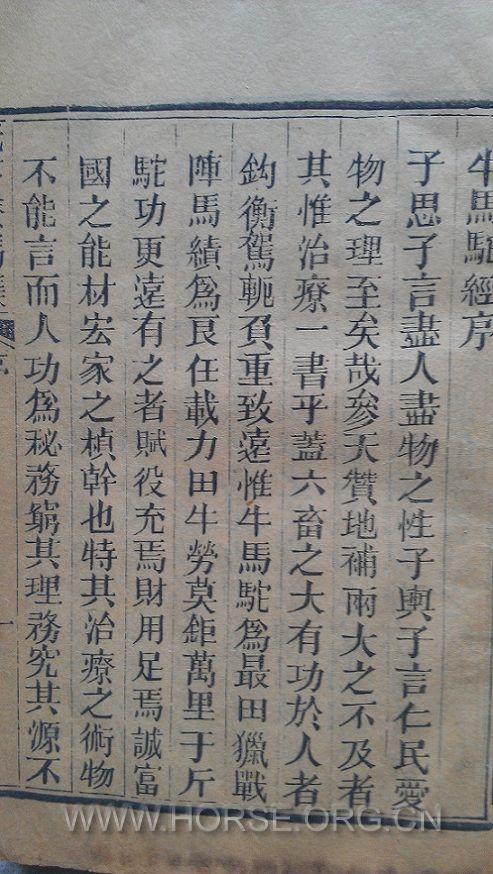 牛馬駝經序
子思子言盡人盡物之性子輿子言仁民愛
物之理至矣哉參天贊地補兩大之不及者
其惟治療一書乎蓋六畜之大有功於人者
鈎衡駕軛負重致遠惟牛馬駝爲最田獵戰
陣馬績爲良任載力田牛勞莫鉅萬里千斤
駝功更遠有之者賦役充焉財用足焉誠富
國之能材宏家之楨幹也特其治療之術物
不能言而人功爲秘務窮其理務究其源不
序
一
WWW.HORSE.ORG.CN